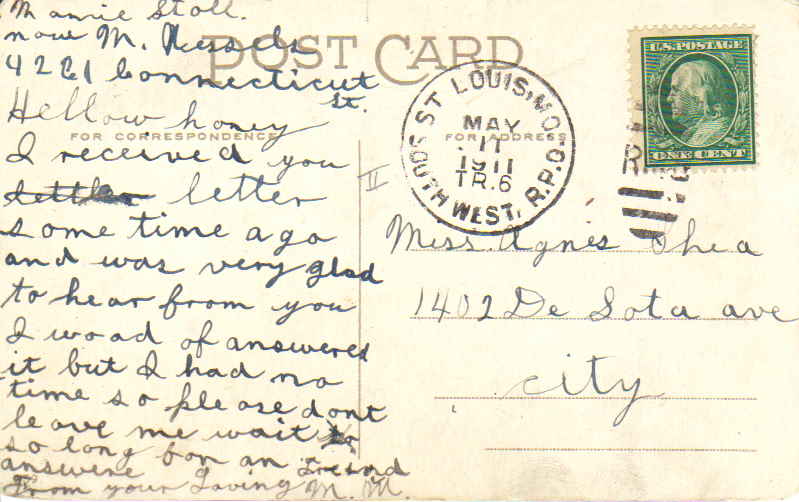 Mamie Stoll.
now M. Kessels
4221 Connecticut
St.
POST CARD
Hellow honey
FOR CORRESPONDENCE
I received you
letter
some time ago
and was very glad
to hear from you
I wood of answered
it but I had no
time so please dont
leave me wait
so long for an
answere
From your Loving M. M.
FOR ADDRESS
ST. LOUIS, MO.
MAY
11
1911
TR.6
SOUTH WEST. R.P.O.
U.S. POSTAGE
ONE CENT
II
Miss Agnes Shea
1402 De Sota ave
City